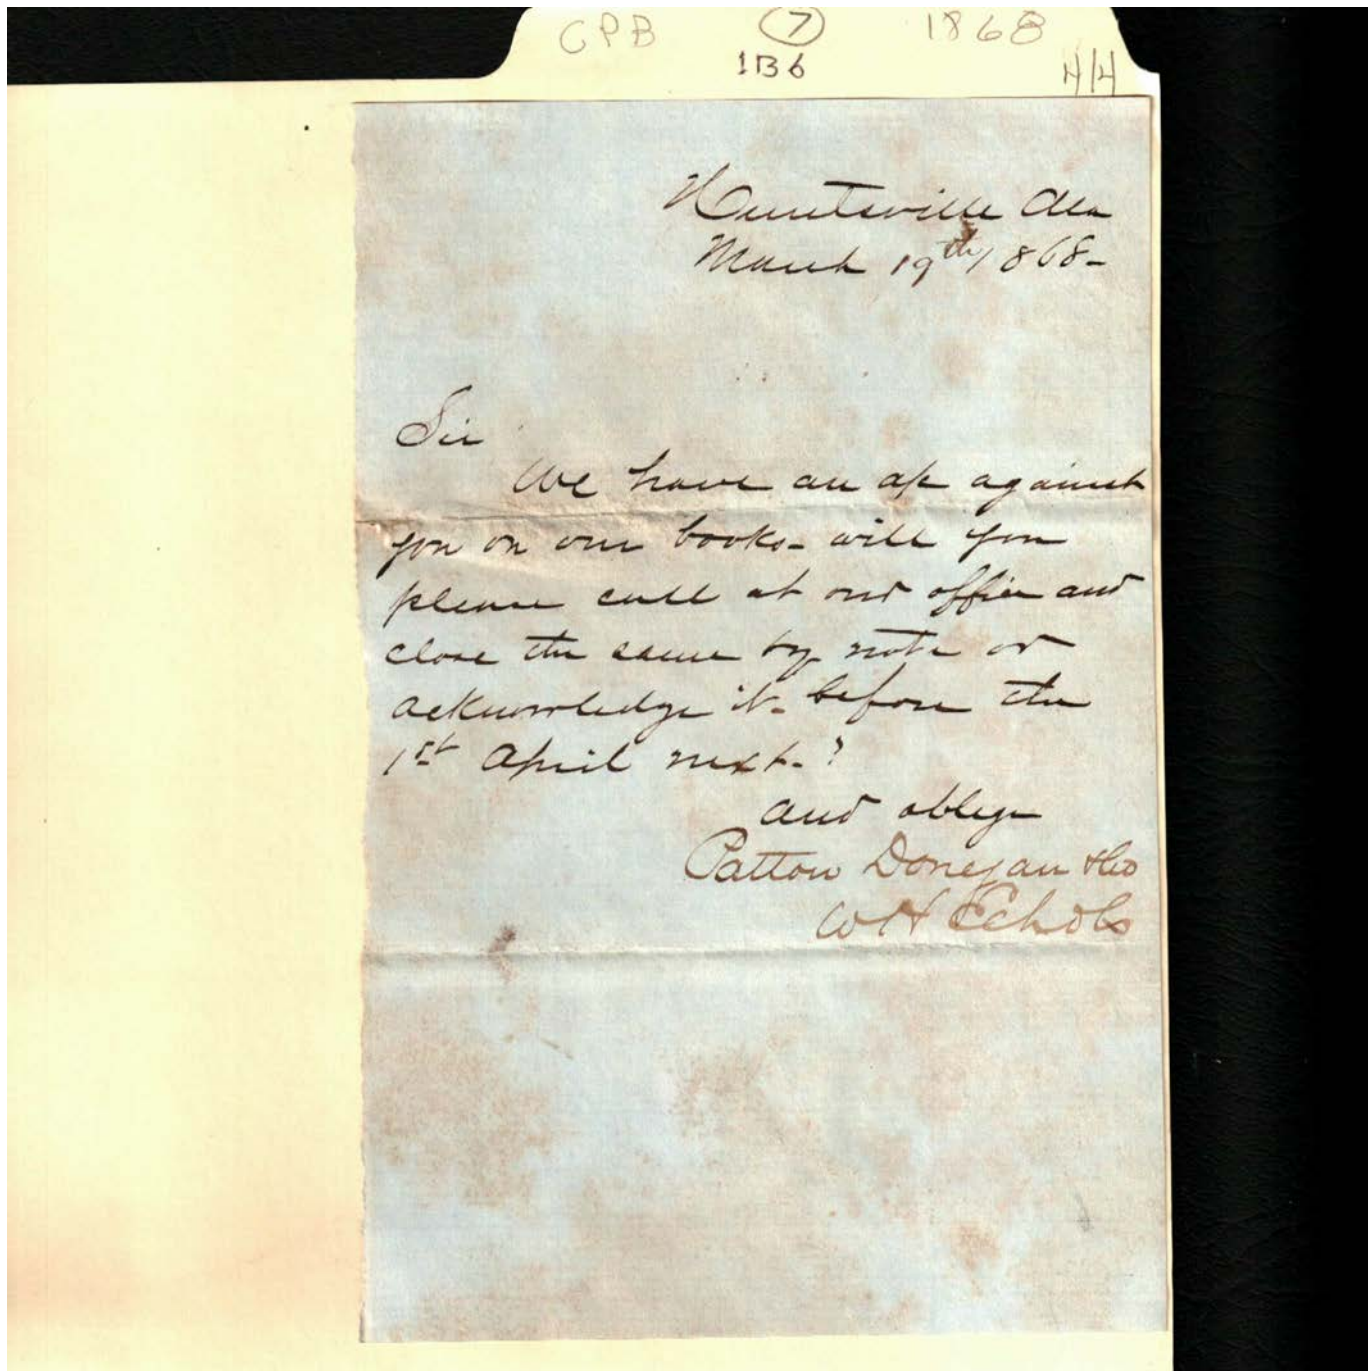 CPB 7 1868
1B6 4/4
Huntsville Ala
March 19th 1868-
Sir
We have an a/c against
you on our books - will you
please call at our office and
close the same by note or
acknowledge it - before the
1st April next - ?
and oblige
Patton Donegan & Co
W H Echols